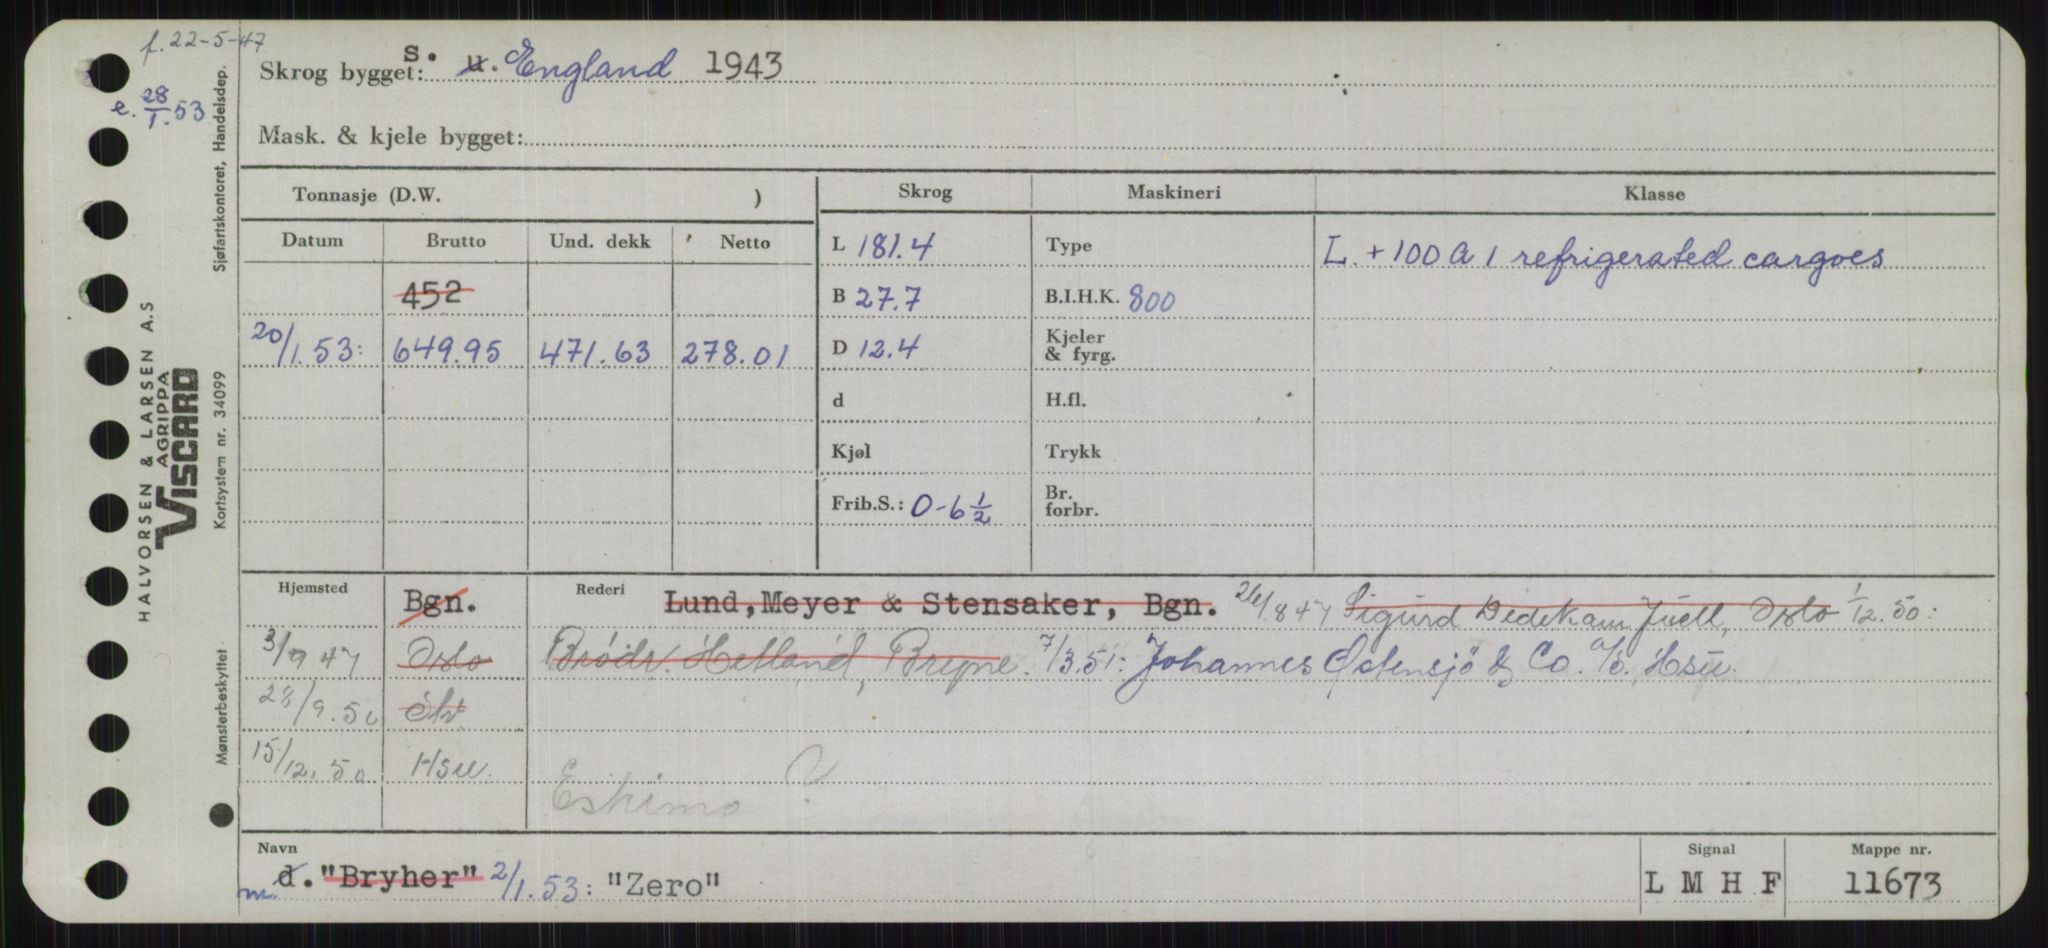 f. 22-5-47
e. 28/1.53
Skrog bygget: s. u. England 1943
Mask. & kjele bygget:
Tonnasje (D.W. )
Skrog
Maskineri
Klasse
Datum
Brutto
Und. dekk
Netto
L 181.4
Type
L. + 100 A 1 refrigerated cargoes
452
B 27.7
B.I.H.K. 800
20/1.53: 649.95 471.63 278.01
D 12.4
Kjeler
& fyrg.
d
H.fl.
Kjøl
Trykk
Frib.S.: 0-6 1/2
Br.
forbr.
Hjemsted
Bgn.
Rederi
Lund, Meyer & Stensaker, Bgn. 26/8 47 Sigurd Dedekam Juell, Oslo 1/12.50:
3/9 47 Oslo Brødr. Hetland, Bryne. 7/3.51: Johannes Østensjö & Co. A/S. Hsu.
28/9.50
15/12.50 Hsu.
Eskimo ?
Navn
m d. "Bryher" 2/1.53: "Zero"
Signal
L M H F
Mappe nr.
11673
HALVORSEN & LARSEN A.S
AGRIPPA
VISCARD
Sjøfartskontoret, Handelsdep.
Kortsystem nr. 34099
Mønsterbeskyttet